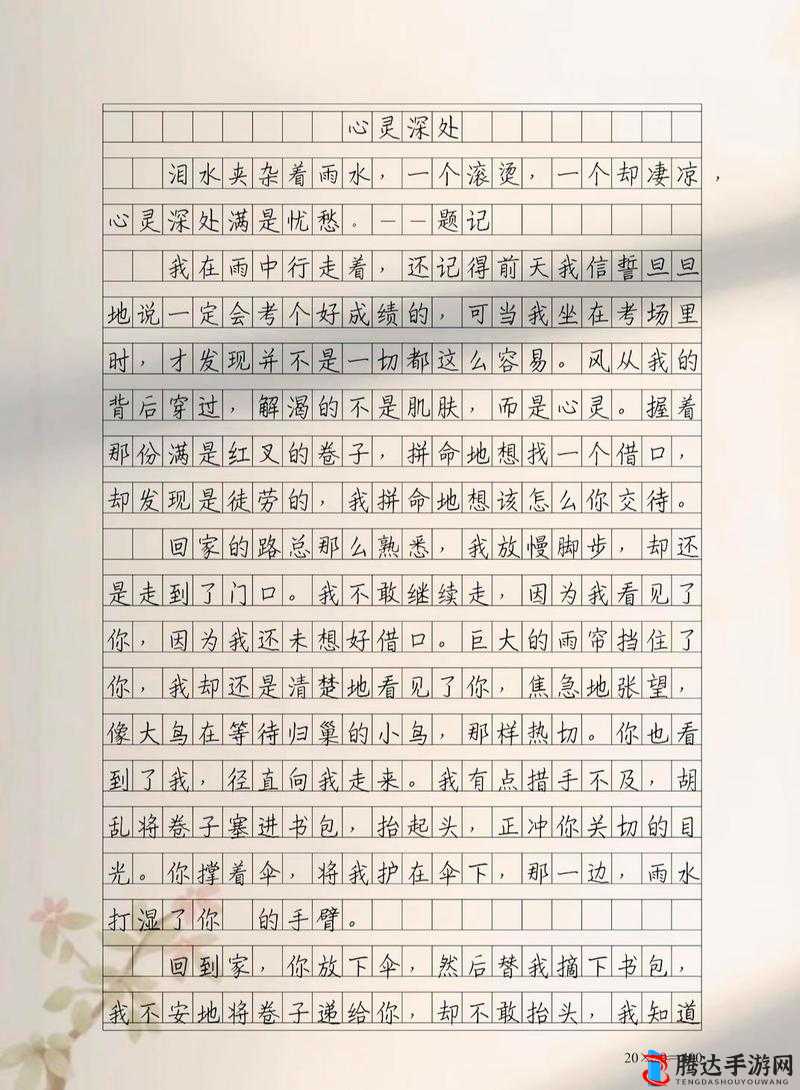 心灵深处
泪水夹杂着雨水，一个滚烫，一个却凄凉，
心灵深处满是忧愁。——题记
我在雨中行走着，还记得前天我信誓旦旦
地说一定会考个好成绩的，可当我坐在考场里
时，才发现并不是一切都这么容易。风从我的
背后穿过，解渴的不是肌肤，而是心灵。握着
那份满是红叉的卷子，拼命地想找一个借口，
却发现是徒劳的，我拼命地想该怎么你交待。
回家的路总那么熟悉，我放慢脚步，却还
是走到了门口。我不敢继续走，因为我看见了
你，因为我还未想好借口。巨大的雨帘挡住了
你，我却还是清楚地看见了你，焦急地张望，
像大鸟在等待归巢的小鸟，那样热切。你也看
到了我，径直向我走来。我有点措手不及，胡
乱将卷子塞进书包，抬起头，正冲你关切的目
光。你撑着伞，将我护在伞下，那一边，雨水
打湿了你 的手臂。
回到家，你放下伞，然后替我摘下书包，
我不安地将卷子递给你，却不敢抬头，我知道
腾达手游网
TENGDASHOUYOUWANG